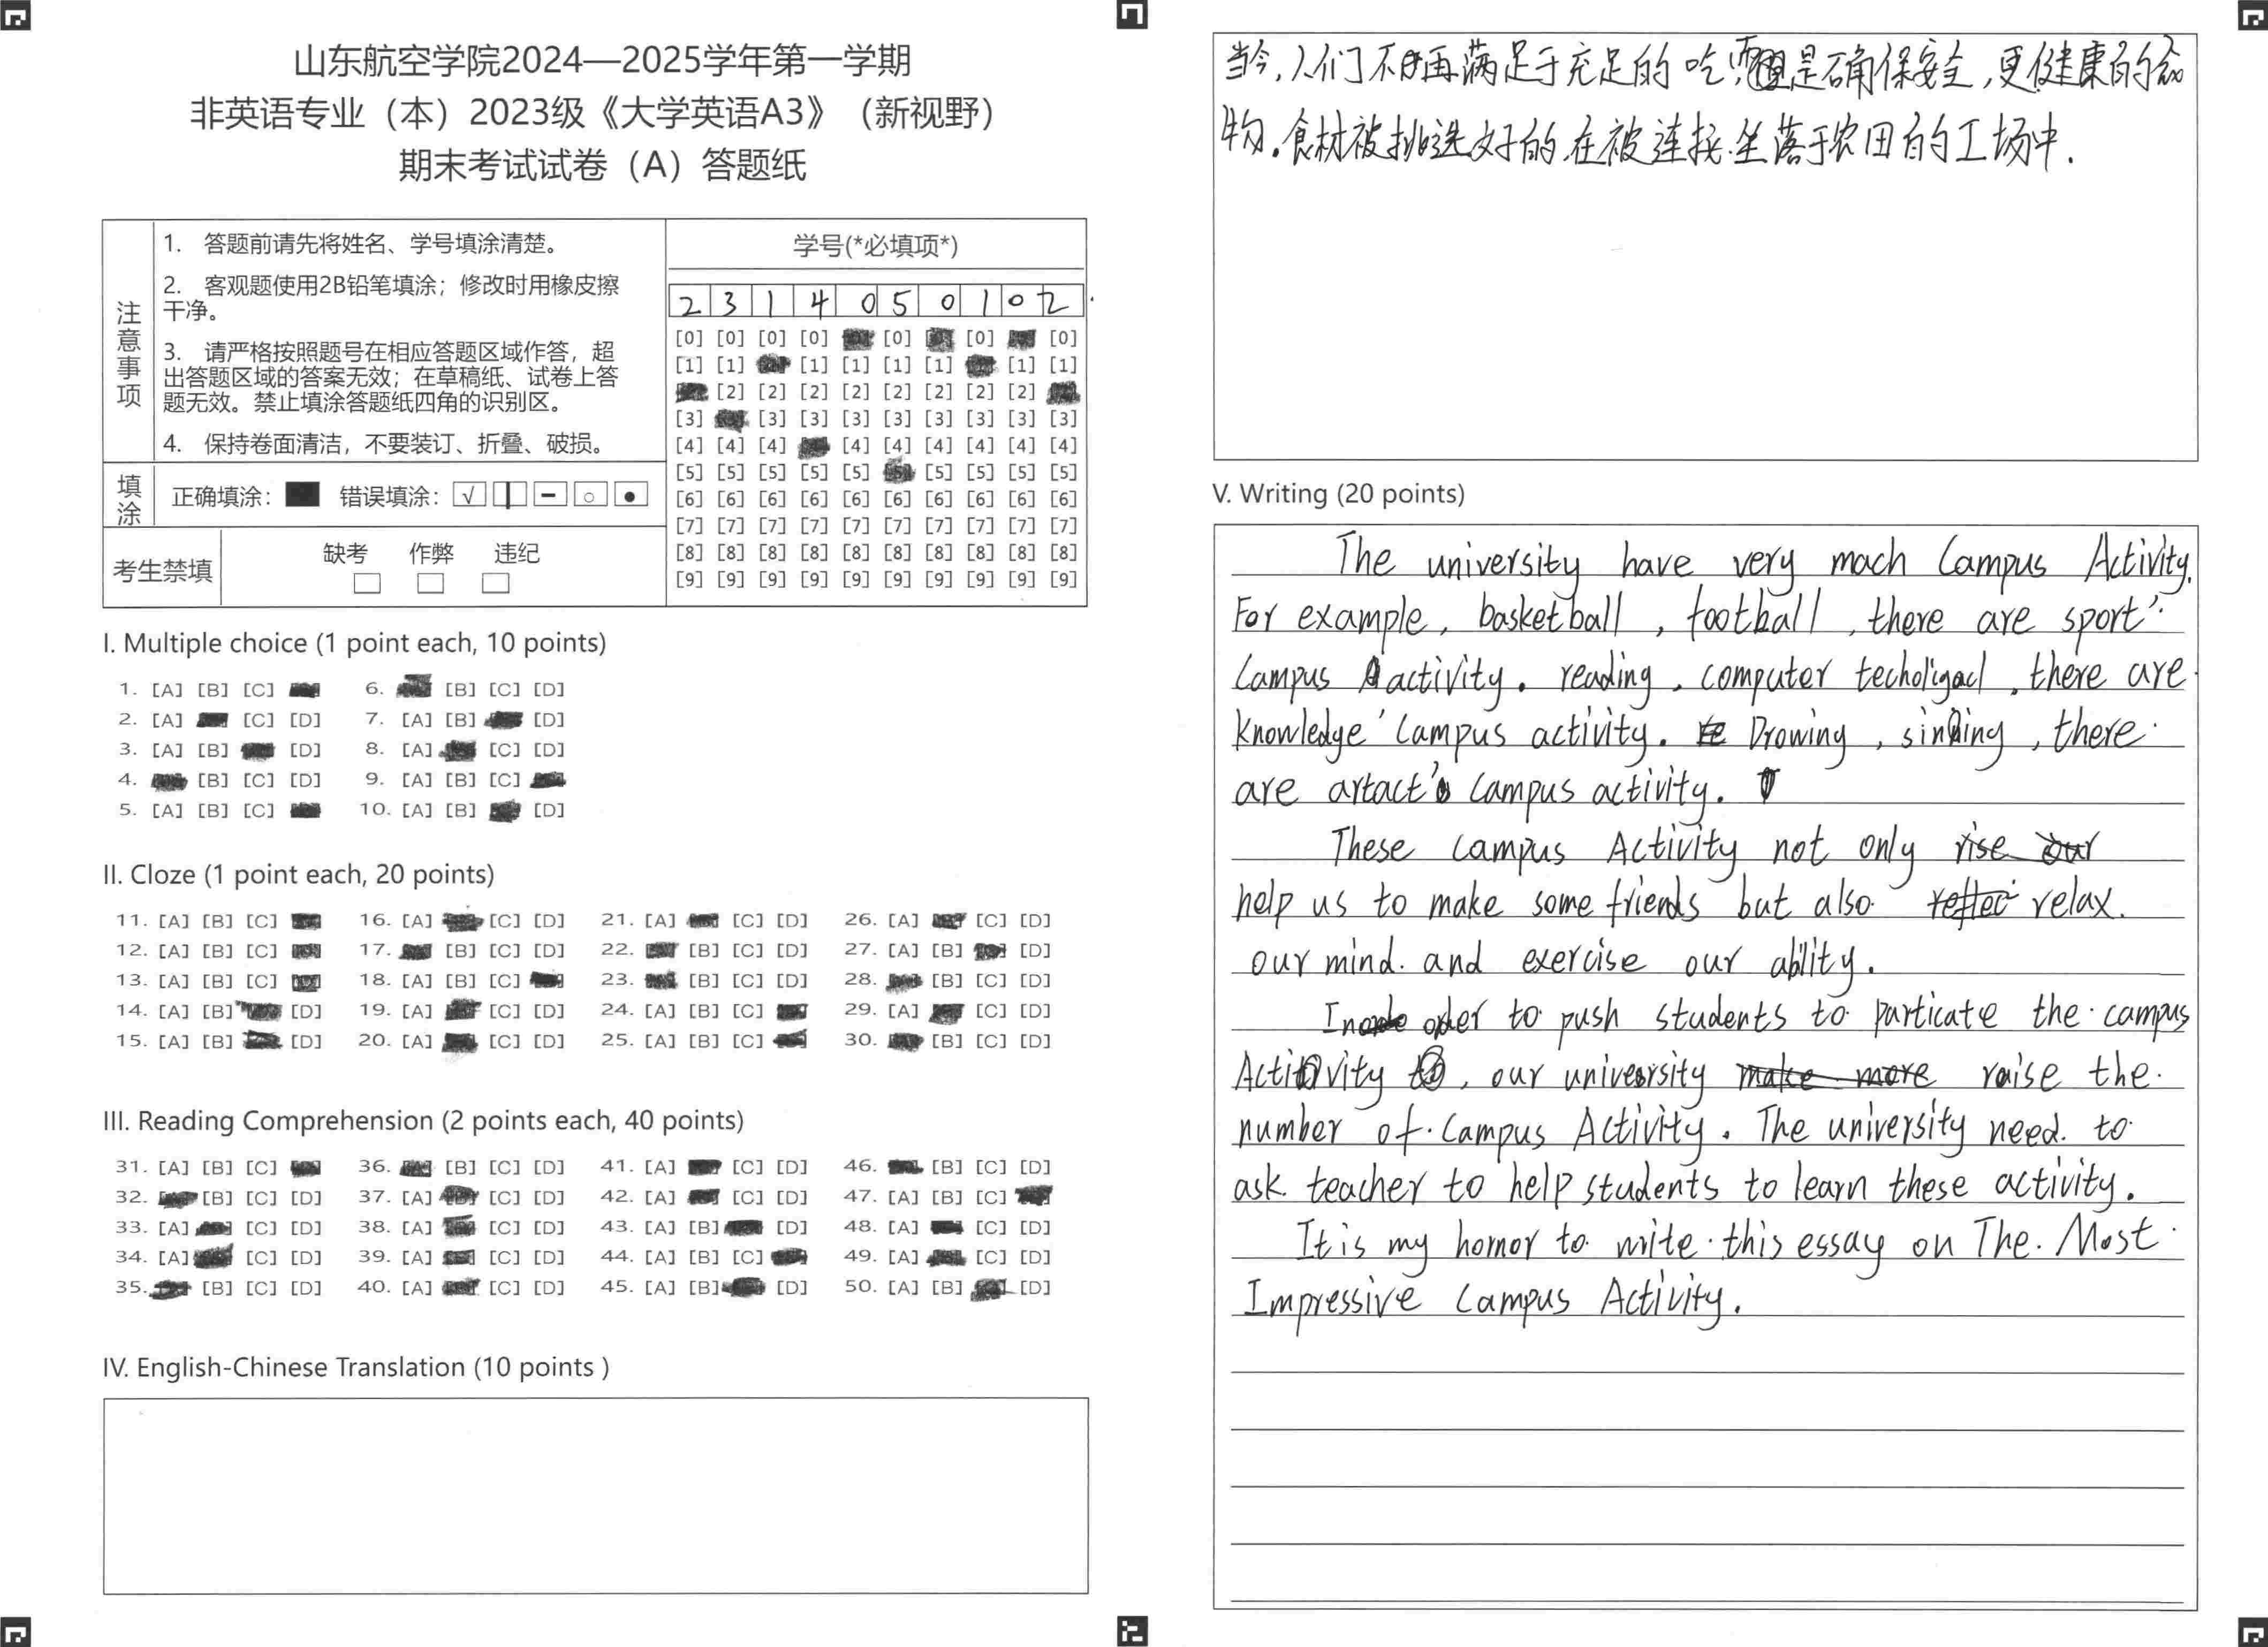 山东航空学院2024—2025学年第一学期
非英语专业（本）2023级《大学英语A3》（新视野）
期末考试试卷（A）答题纸
注意事项
1. 答题前请先将姓名、学号填涂清楚。
2. 客观题使用2B铅笔填涂；修改时用橡皮擦
干净。
3. 请严格按照题号在相应答题区域作答，超
出答题区域的答案无效；在草稿纸、试卷上答
题无效。禁止填涂答题纸四角的识别区。
4. 保持卷面清洁，不要装订、折叠、破损。
填涂
正确填涂： 错误填涂：
考生禁填
缺考 作弊 违纪
学号(*必填项*)
2 3 1 4 0 5 0 1 0 2
[0] [0] [0] [0] [0] [0] [0]
[1] [1] [1] [1] [1] [1] [1] [1]
[2] [2] [2] [2] [2] [2] [2] [2]
[3] [3] [3] [3] [3] [3] [3] [3] [3]
[4] [4] [4] [4] [4] [4] [4] [4] [4]
[5] [5] [5] [5] [5] [5] [5] [5] [5]
[6] [6] [6] [6] [6] [6] [6] [6] [6] [6]
[7] [7] [7] [7] [7] [7] [7] [7] [7] [7]
[8] [8] [8] [8] [8] [8] [8] [8] [8] [8]
[9] [9] [9] [9] [9] [9] [9] [9] [9] [9]
I. Multiple choice (1 point each, 10 points)
1. [A] [B] [C] 6. [B] [C] [D]
2. [A] [C] [D] 7. [A] [B] [D]
3. [A] [B] [D] 8. [A] [C] [D]
4. [B] [C] [D] 9. [A] [B] [C]
5. [A] [B] [C] 10. [A] [B] [D]
II. Cloze (1 point each, 20 points)
11. [A] [B] [C] 16. [A] [C] [D] 21. [A] [C] [D] 26. [A] [C] [D]
12. [A] [B] [C] 17. [B] [C] [D] 22. [B] [C] [D] 27. [A] [B] [D]
13. [A] [B] [C] 18. [A] [B] [C] 23. [B] [C] [D] 28. [B] [C] [D]
14. [A] [B] [D] 19. [A] [C] [D] 24. [A] [B] [C] 29. [A] [C] [D]
15. [A] [B] [D] 20. [A] [C] [D] 25. [A] [B] [C] 30. [B] [C] [D]
III. Reading Comprehension (2 points each, 40 points)
31. [A] [B] [C] 36. [B] [C] [D] 41. [A] [C] [D] 46. [B] [C] [D]
32. [B] [C] [D] 37. [A] [C] [D] 42. [A] [C] [D] 47. [A] [B] [C]
33. [A] [C] [D] 38. [A] [C] [D] 43. [A] [B] [D] 48. [A] [C] [D]
34. [A] [C] [D] 39. [A] [C] [D] 44. [A] [B] [C] 49. [A] [C] [D]
35. [B] [C] [D] 40. [A] [C] [D] 45. [A] [B] [D] 50. [A] [B] [D]
IV. English-Chinese Translation (10 points )
当今,人们不再满足于充足的吃,是确保安全,更健康的食
物。食材被挑选好的,在被连接.坐落于农田的工场中.
V. Writing (20 points)
The university have very mach Campus Activity.
For example, basketball, football, there are sport's
Campus activity. reading, computer techoligacl, there are
knowledge' Campus activity. Drowing, sinDing, there
are artact' Campus activity.
These Campus Activity not only
help us to make some friends but also relax.
our mind. and exercise our ability.
In order to push students to particate the campus
Activity, our university raise the
number of Campus Activity. The university need to
ask teacher to help students to learn these activity.
It is my homor to write this essay on The Most
Impressive Campus Activity.